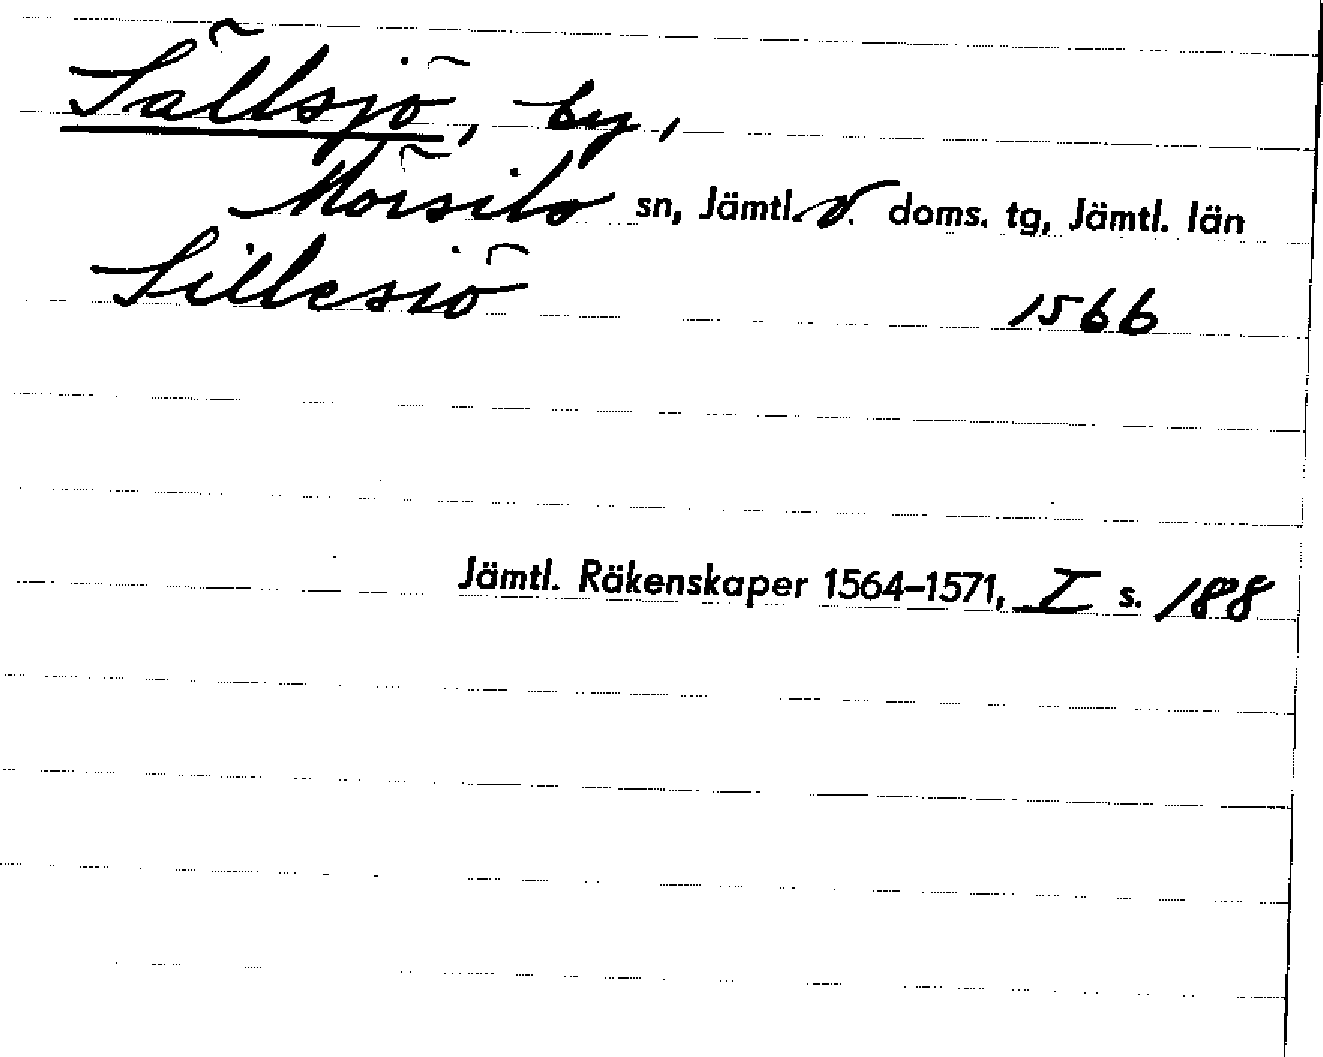 Sällsjö, by,
Mörsils sn, Jämtl. v. doms. tg, Jämtl. län
Sillesiö 1566
Jämtl. Räkenskaper 1564–1571, I s. 188